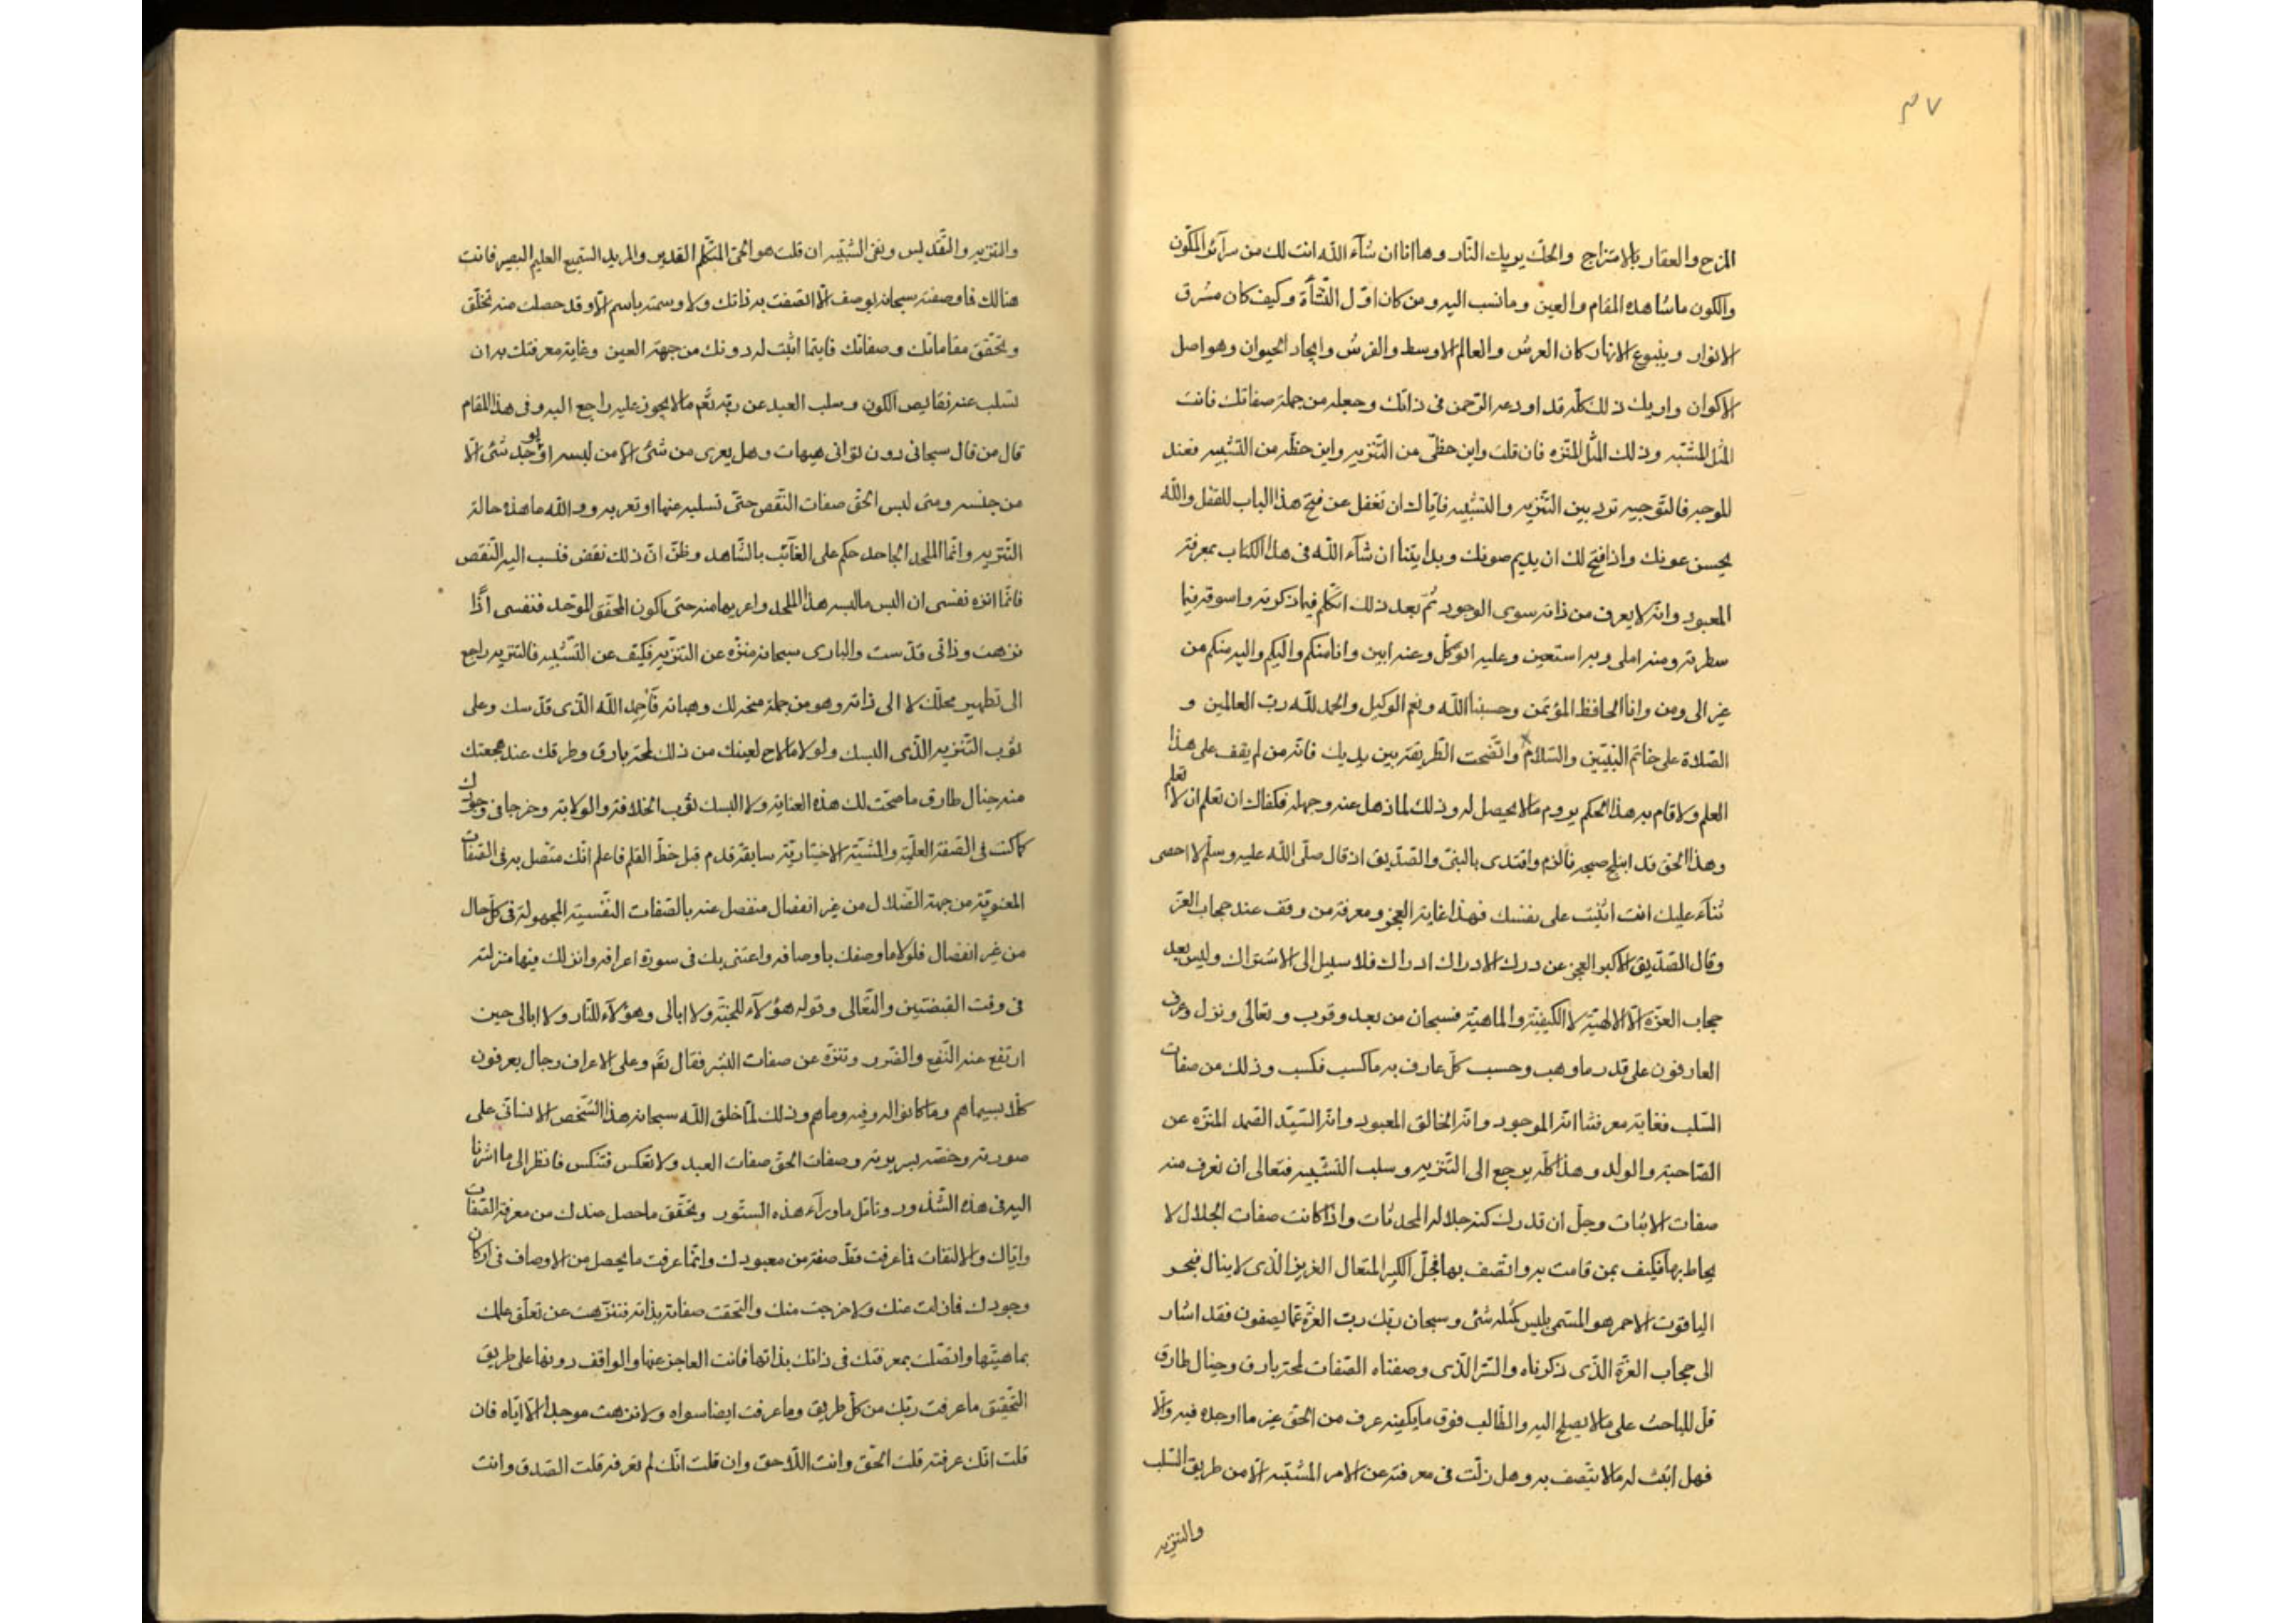 ٣٧
المزح والعقار بالامتزاج والحك يريك النّار وها انا ان شآء اللّه انت لك من سرآئر المكّون
والكون ما شاهده المقام والعين وما نسب اليه ومن كان اوّل النّشأة وكيف كان مشرق
الانوار وينبوع الانهار كان العرش والعالم الاوسط والفرش وايجاد الحيوان وهو اصل
الاكوان واريك ذلك كلّه قد اودعه الرّحمن فى ذاتك وجعله من جملة صفاتك فانت
المثل المشبّه وذلك المثل المنزّه فان قلت واين حظّى من التّنزيه واين حظّه من التّشبيه فعند
الموجه فالتّوجيه ترد بين التّنزيه والتّشبيه فايّاك ان تغفل عن فتح هذا الباب المقفل واللّه
يحسن عونك واذا فتح لك ان يديم صونك وبدايتنا ان شآء اللّه فى هذا الكتاب بمعرفة
المعبود وانّه لا يعرف من ذاته سوى الوجود ثمّ بعد ذلك اتكلّم فيما ذكرته واسوقه فيما
سطرته ومنه املى وبه استعين وعليه اتوكّل وعنه ابين وانا منكم واليكم واليه منكم من
غير الى ومن وانا الحافظ المؤتمن وحسبنا اللّه ونعم الوكيل والحمد للّه ربّ العالمين و
الصّلاة على خاتم النّبيّين والسّلام واتّضحت الطّريقة بين يديك فانّه من لم يقف على هذا
العلم ولا قام به هذا الحكم يروم ما لا يحصل له وذلك لما ذهل عنه وجهله فكفاك ان تعلم ان لا تعلم
وهذا الحق قد ابتلج صبحه فالزم واقتدى بالنبىّ والصّدّيق اذ قال صلّى اللّه عليه وسلّم لا احصى
ثنآء عليك انت اثنيت على نفسك فهذا غاية العجز ومعرفة من وقف عند حجاب العزّ
وقال الصّدّيق الاكبر العجز عن درك الادراك ادراك فلا سبيل الى الاشتراك وليس بعد
حجاب العزّة الّا الالهيّة لا الكيفيّة والماهيّة فسبحان من بعد وقرب وتعالى ونزل وعرف
العارفون على قدر ما وهب وحسب كلّ عارف به ما كسب فكسب وذلك من صفات
السّلب فغاية معرفتنا انّه الموجود وانّه الخالق المعبود وانّه السّيّد الصّمد المنزّه عن
الصّاحبة والولد وهذا كلّه يرجع الى التّنزيه وسلب التّشبيه فتعالى ان نعرف منه
صفات الاثبات وجلّ ان تدرك كنه جلاله المحدثات واذا كانت صفات الجلال لا
يحاط بها فكيف بمن قامت به واتّصف بها فجلّ الكبير المتعال العزيز الّذى لا ينال فبحر
الياقوت الاحمر هو المسمّى بليس كمثله شئ وسبحان ربّك ربّ العزّة عمّا يصفون فقد اشار
الى حجاب العزّة الّذى ذكرناه والسّرّ الّذى وصفناه الصّفات لمحة بارق وخيال طارق
قل للباحث على ما لا يصلح اليه والطّالب فوق ما يكفيه عرف من الحقّ غير ما اوجده فيه والّا
فهل اثبتّ له ما لا يتّصف به وهل زلّت فى معرفته عن الامر المشتبه الّا من طريق السّلب
والتنزيه
والتنزيه والتّقديس ونفى التّشبيه ان قلت هو الحىّ المتكلّم القدير والمريد السّميع العليم البصير فانت
هنالك فما وصفته سبحانه بوصف الّا اتّصفت به ذاتك ولا وسمته باسم الّا وقد حصلت منه تخلّق
وتحقّق مقاماتك وصفاتك فاينما اثبت له دونك من جهة العين وغاية معرفتك به ان
تسلب عنه نقايص الكون وسلب العبد عن ربّه تعم ما لا يجوز عليه راجع اليه وفى هذا المقام
قال من قال سبحانى دون توانى هيهات وهل يعرى من شئ الّا من لبسه او يوجد شئ الّا
من جنسه ومتى لبس الحقّ صفات النّقص حتّى تسلبه عنها او تعريه وواللّه ما هذه حالة
التّنزيه وانّما الملحد الجاحد حكم على الغآئب بالشّاهد وظنّ انّ ذلك نقض فنسب اليه النّقص
فانّما انزه نفسى ان البس ما لبسه هذا الملحد واعريها منه حتى اكون المحقّق الموحّد فنفسى اذًا
نزهت وذاتى قدّست والبارى سبحانه منزّه عن التنزيه فكيف عن التّشبيه فالتنزيه راجع
الى تطهير محلّك لا الى ذاته وهو من جملة منحه لك وهباته فاحمد اللّه الّذى قدّسك وعلى
ثوب التّنزيه الّذى البسك ولولا ما لاح لعينك من ذلك لمحة بارق وطرقك عند هجعتك
منه خيال طارق ما صحّت لك هذه العناية ولا البسك ثوب الخلافة والولاية وخرجا فى وجودك
كما كنت فى الصّفة العلّية والمشيّة الاختياريّة سابقة قدم قبل خطّ القلم فاعلم انّك متّصل به فى الصّفات
المعنويّة من جهة الضّلال من غير انفصال منفصل عنه بالصّفات النّفسيّة المجهولة فى كلّ حال
من غير انفصال فلولا ما وصفك باوصافه واعتنى بك فى سورة اعرافه وانزلك فيها منزلته
فى وقت القبضتين والتّعالى وقوله هؤلآء للجنّة ولا ابالى وهؤلآء للنّار ولا ابالى حين
ارتفع عنه النّفع والضّرر وتنزّه عن صفات البشر فقال تعم وعلى الاعراف رجال يعرفون
كلّا بسيماهم وما كانوا له وفيه وما هم وذلك لمّا خلق اللّه سبحانه هذا الشّخص الانسانىّ على
صورته وخصّه بسريرته وصفات الحقّ صفات العبد ولا تعكس فتنكس فانظر الى ما اشرنا
اليه فى هذه الشّذور وتامّل ما ورآء هذه السّتور وتحقّق ما حصل عندك من معرفة الصّفات
وايّاك والالتفات فما عرفت قطّ صفة من معبودك وانّما عرفت ما يحصل من الاوصاف فى اركان
وجودك فما زلت عنك ولا خرجت منك والتحقت صفاته بذاته فتنزّهت عن تعلّق علمك
بماهيّتها واتصّلك بمعرفتك فى ذاتك بذاتها فانت العاجز عنها والواقف دونها على طريق
التّحقيق ما عرفت ربّك من كلّ طريق وما عرفت ايضا سواه ولا نزهت موجدا الّا ايّاه فان
قلت انّك عرفته قلت الحقّ وانت اللّاحق وان قلت انّك لم تعرفه قلت الصّدق وانت